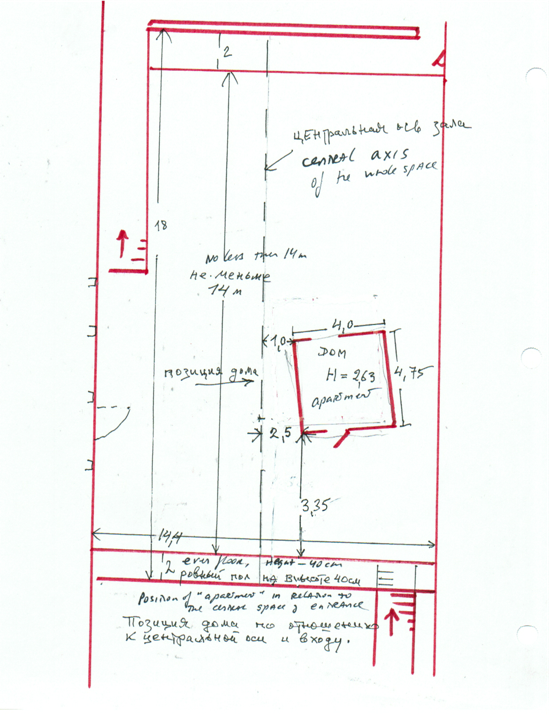 2
ЦЕНТРАЛЬНАЯ ОСЬ ЗАЛА
CENTRAL AXIS
of the whole SPACE
18
No less then 14 m
не меньше
14 м
1,0
4,0
ДОМ
H = 2,63
apartment
4,75
позиция дома
2,5
3,35
14,4
2
even floor, Height - 40 cm
ровный пол на высоте 40см
Position of "apartment" in relation to
the central space & entrance
Позиция дома по отношению
к центральной оси и входу.